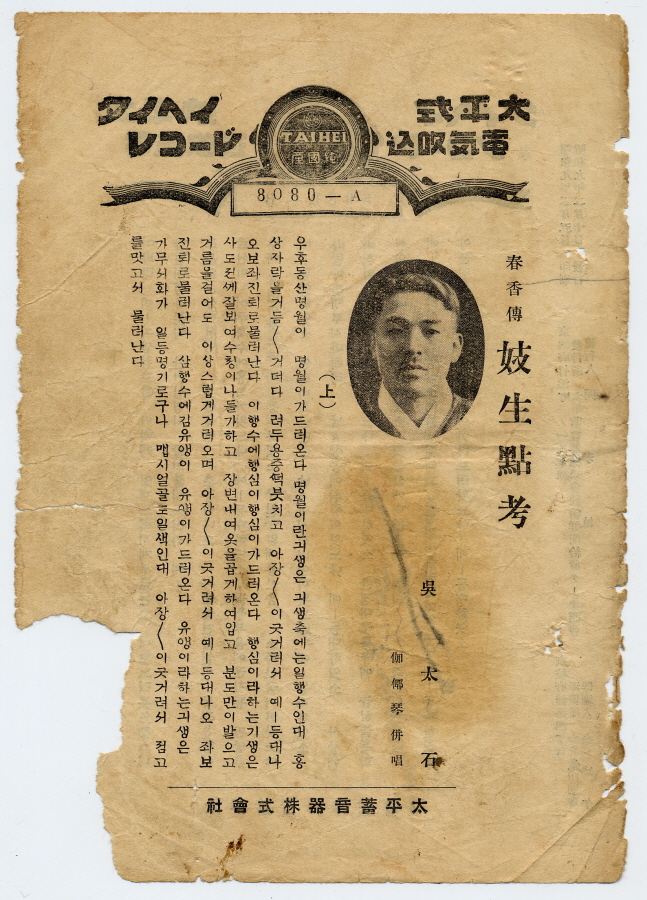 太平式
電気吹込
タイヘイ
レコード
TAIHEI
8080—A
春香傳
妓生點考
吳太石
伽倻琴倂唱
(上)
우후동산명월이 명월이가드러온다 명월이란긔생은 긔생축에는일행수인대 홍
상자락을거듬〱거더다 려두용증턱붓치고 아장〱이긋거려서 예ー등대나
오보좌진퇴로물러난다 이행수에행심이행심이가드러온다 행심이라하는기생은
잘뵈여수청이나들가하고 장변내여옷을곱게하여입고 분도만이발으고
거름을걸어도 이상스럽게거러오며 아장〱이긋거려서 예ー등대나오 좌보
진퇴로물러난다 삼행수에김유앵이 유앵이가드러온다 유앵이라하는긔생은
가무서화가 일등명기로구나 맵시얼골도일색인대 아장〱이긋거려서 점고
를맛고서 물러난다
太平蓄音器株式會社